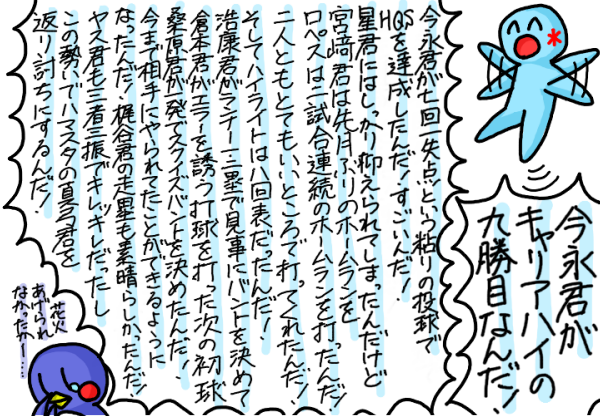 今永君が七回一失点という粘りの投球で
HQSを達成したんだ!すごいんだ!
星君にはしっかり抑えられてしまったんだけど
宮崎君は先月ぶりのホームランを
ロペスは二試合連続のホームランを打ったんだ!
二人ともとてもいいところで打ってくれたんだ!
そしてハイライトは八回表だったんだ!
浩康君がランナー一三塁で見事にバントを決めて
倉本君がエラーを誘う打球を打った次の初球
桑原君が初球でスクイズバントを決めたんだ!
今まで相手にやられてたことができるように
なったんだ!梶谷君の走塁も素晴らしかったんだ!
ヤス君も三者三振でキレッキレだったし
この勢いでハマスタの真弓君を
返り討ちにするんだ!
今永君が
キャリアハイの
九勝目なんだ!
花火
あげられ
なかったかー…